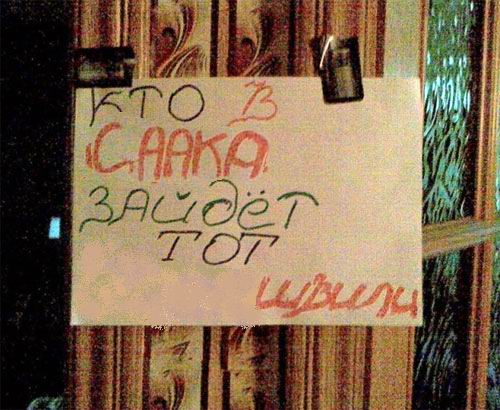 КТО В
СААКА
ЗАЙДЁТ
ТОТ
ШВИЛИ